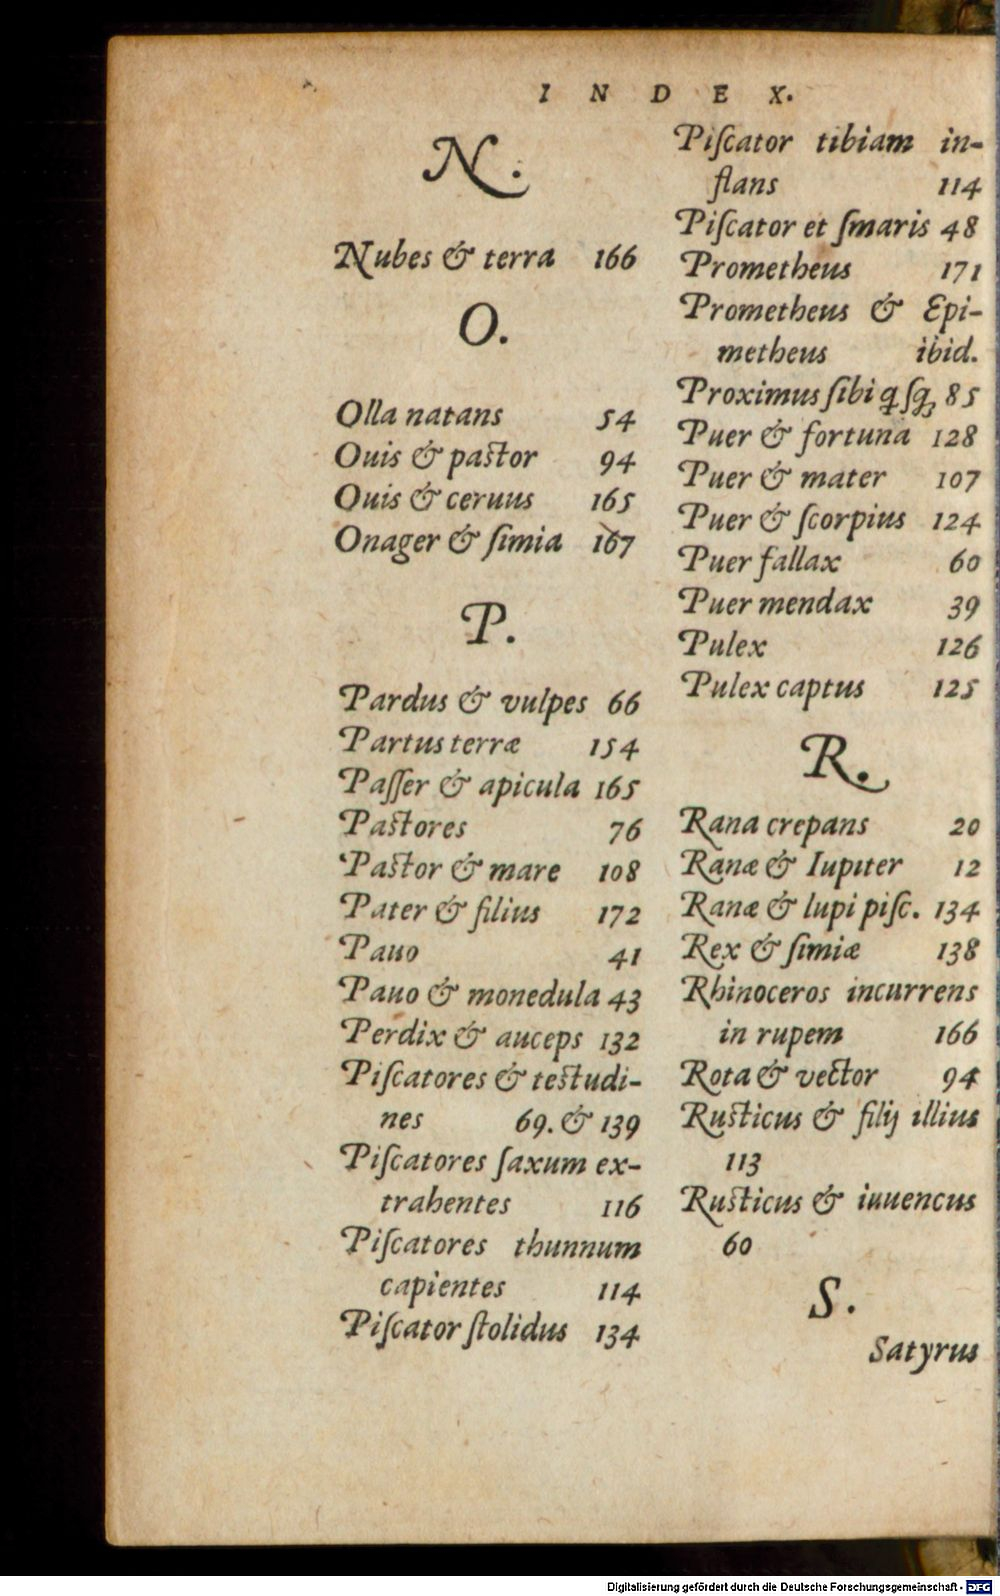 INDEX.
N.
Nubes & terra 166
O.
Olla natans 54
Ouis & pastor 94
Ouis & ceruus 165
Onager & ſimia 167
P.
Pardus & vulpes 66
Partus terræ 154
Paſſer & apicula 165
Pastores 76
Pastor & mare 108
Pater & filius 172
Pauo 41
Pauo & monedula 43
Perdix & auceps 132
Piſcatores & testudi-
nes 69. & 139
Piſcatores ſaxum ex-
trahentes 116
Piſcatores thunnum
capientes 114
Piſcator ſtolidus 134
Piſcator tibiam in-
flans 114
Piſcator et ſmaris 48
Prometheus 171
Prometheus & Epi-
metheus ibid.
Proximus ſibi 85
Puer & fortuna 128
Puer & mater 107
Puer & ſcorpius 124
Puer fallax 60
Puer mendax 39
Pulex 126
Pulex captus 125
R.
Rana crepans 20
Ranæ & Iupiter 12
Ranæ & lupi piſc. 134
Rex & ſimiæ 138
Rhinoceros incurrens
in rupem 166
Rota & vector 94
Rusticus & filij illius
113
Rusticus & iuuencus
60
S.
Satyrus
Digitalisierung gefördert durch die Deutsche Forschungsgemeinschaft - DFG